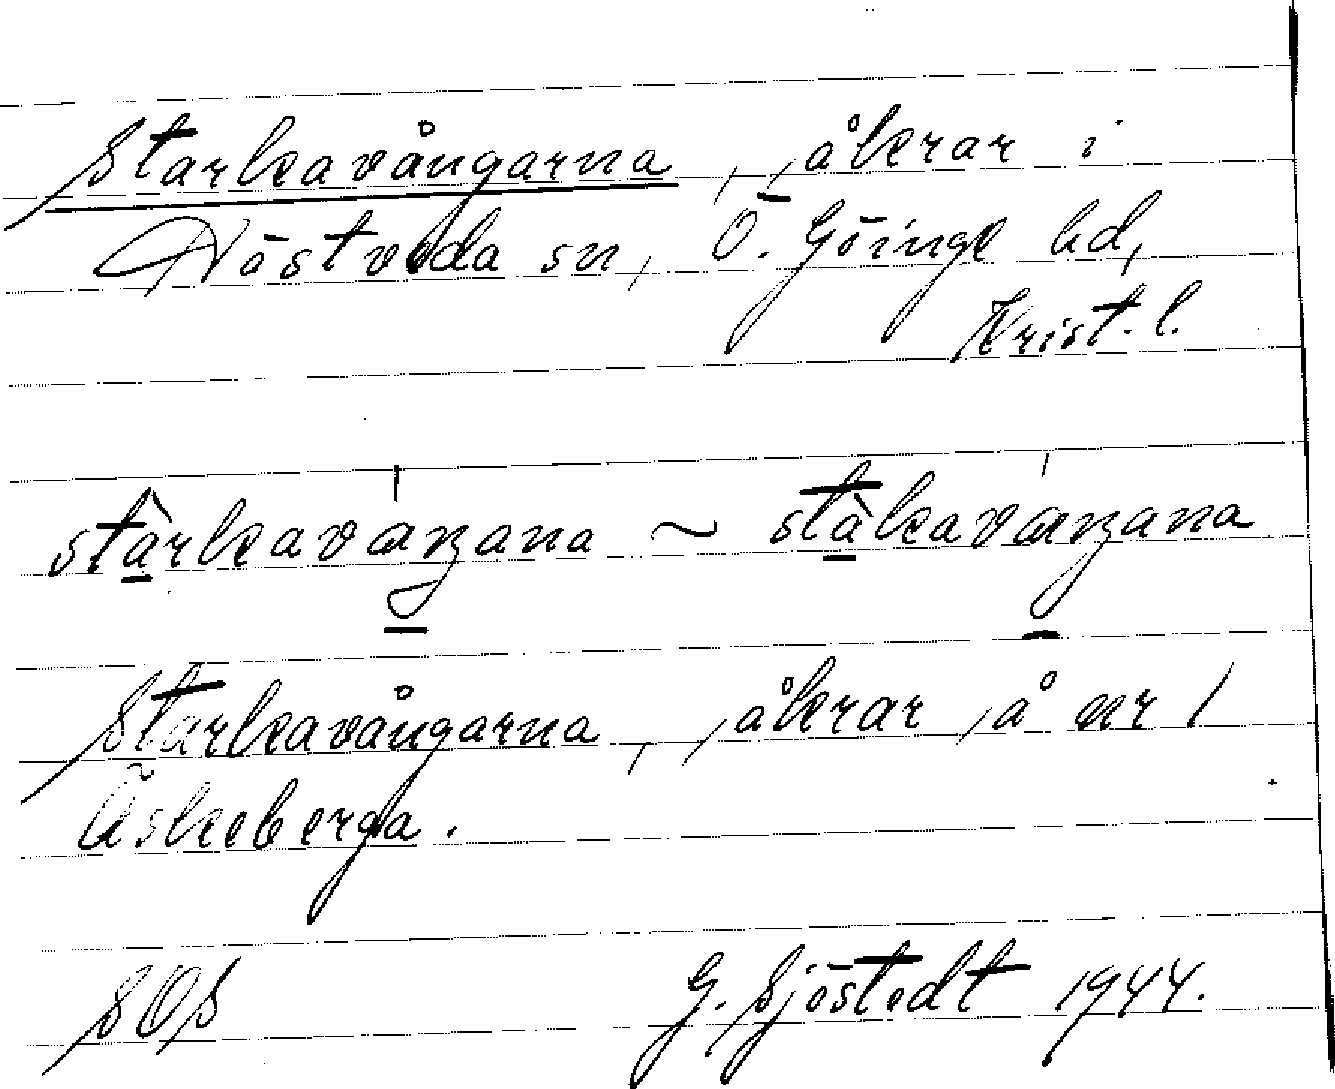 Starkavångarna, åkrar i
Hästveda sn, Ö. Göinge hd,
Krist. l.
stârkavaŋana ~ stàkavaŋana
Starkavångarna, åkrar å nr 1
Äskeberga.
SOS G. Sjöstedt 1944.